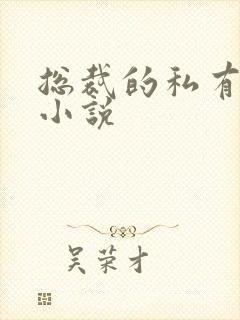 总裁的私有
小说
吴荣才